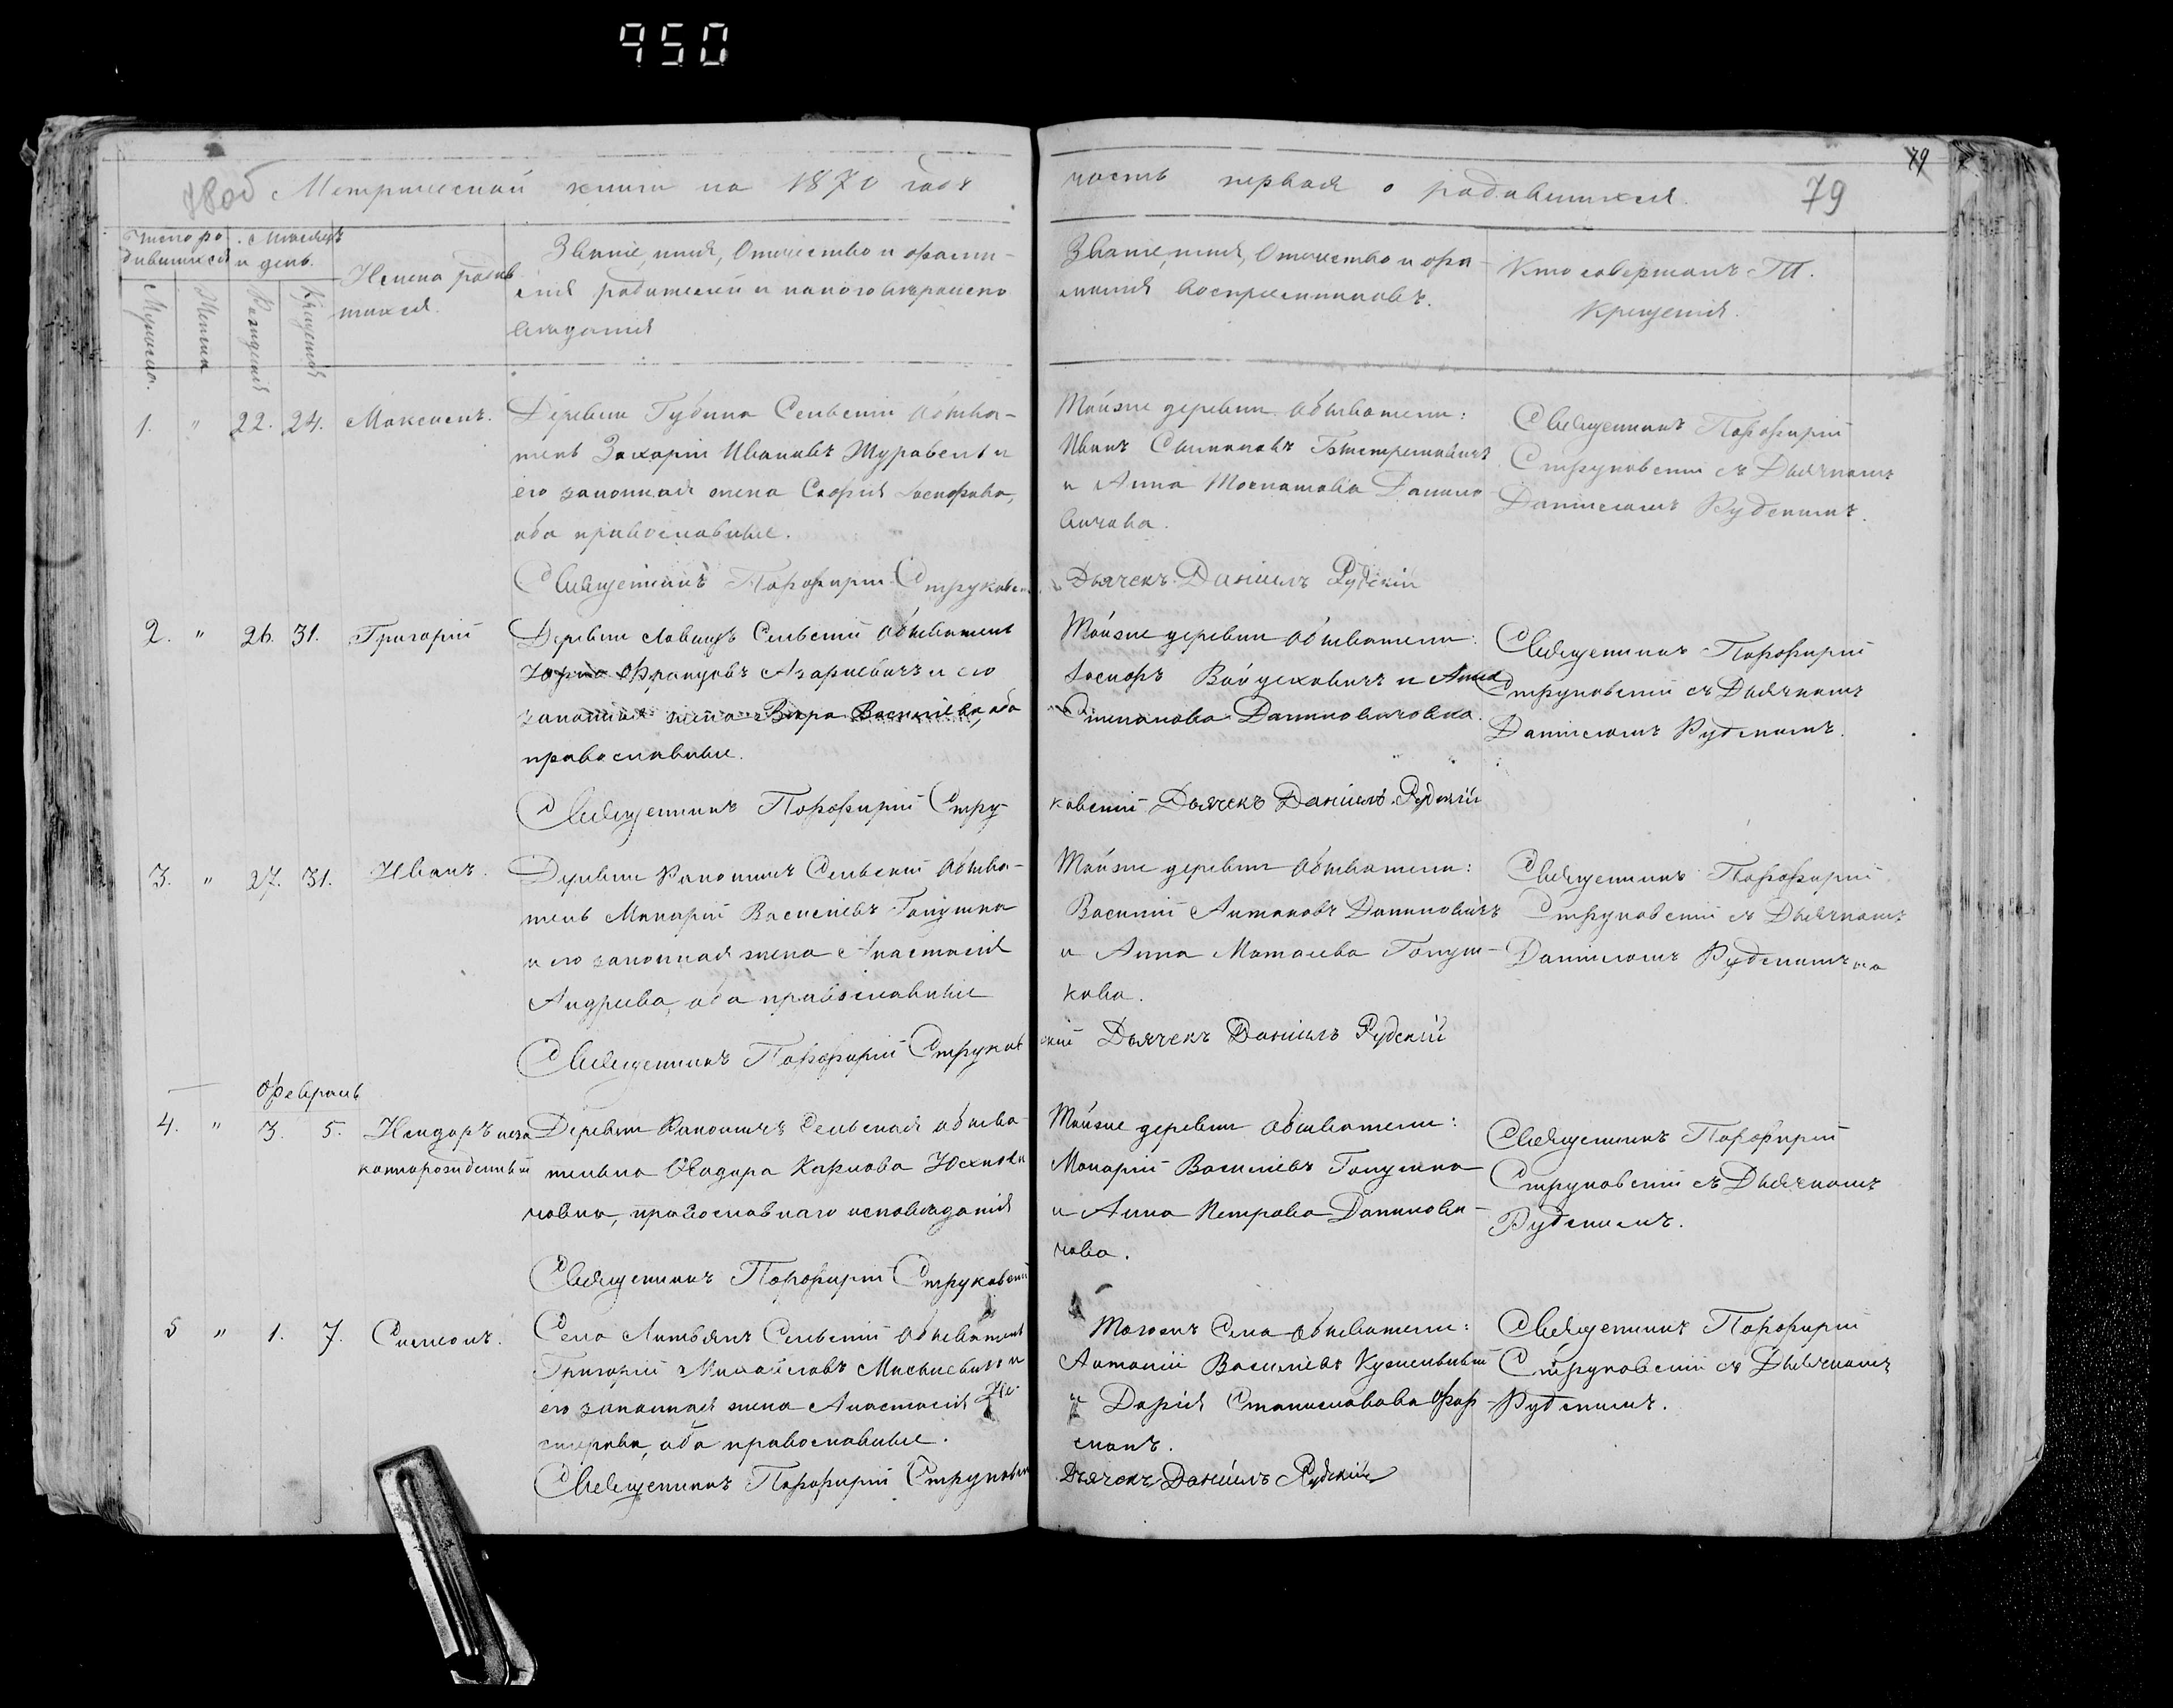 950
78об Метрической книги на 1870 годъ
часть первая о родившихся.
79
79
Число ро-
дившихся
Мѣсяцъ
и день.
Мужеска.
Женска
Рожденія
Крещенія
Имена родив
шихся.
Званіе, имя, Отчество и фами-
лія родителей и какого вѣроиспо
вѣданія
Званіе, имя, Отчество и фа-
милія воспріемниковъ.
Кто совершалъ Т.
Крещенія.
1. " 22. 24. Максимъ.
Деревни Губина Сельскій обыва-
тель Захарій Ивановъ Журавель и
его законная жена Софія Іосифова,
оба православные.
Священникъ Порфирій Струковск
Тойже деревни обыватели:
Иванъ
и Анна Данило
вичова.
Дьячекъ Даніилъ Рудскій
Священникъ Порфирій
Струковскій съ Дьячкомъ
Даніиломъ Рудскимъ.
2. " 26. 31. Григорій
Деревни Сельскій обыватель
Францовъ Азаркевичъ и его
законная жена Вѣра Василіева, оба
православные.
Священникъ Порфирій Стру-
Тойже деревни обыватели:
Іосифъ Войцеховичъ и Анна
Степанова Даниловичовна.
ковскій Дьячекъ Даніилъ Рудскій
Священникъ Порфирій
Струковскій съ Дьячкомъ
Даніиломъ Рудскимъ.
3. " 27. 31. Иванъ.
Деревни Сельскій обыва-
тель Макарій Василіевъ Галушка
и его законная жена Анастасія
Андреева, оба православные
Священникъ Порфирій Струков
Тойже деревни обыватели:
Василій Антоновъ Даниловичъ
и Анна Матвеева Галуш-
кова.
скій Дьячекъ Даніилъ Рудскій
Священникъ Порфирій
Струковскій съ Дьячкомъ
Даніиломъ Рудскимъ
Февраль
4. " 3. 5. Исидоръ неза
коннорожденный
Деревни Сельская обыва-
телька Феодора Карпова Юхнови
човна, православнаго исповѣданія
Священникъ Порфирій Струковскій
Тойже деревни обыватели:
Макарій Василіевъ Галушка
и Анна Петрова Данилови-
чова.
Священникъ Порфирій
Струковскій съ Дьячкомъ
Рудскимъ.
5 " 1. 7. Симеонъ.
Села Литвянъ Сельскій обыватель
Григорій Михайловъ и
его законная жена Анастасія Не-
стерова, оба православные.
Священникъ Порфирій Струковск
Тогожъ Села обыватели:
Антоній Василіевъ
и Дарія Станиславова Фур-
сманъ.
Дьячекъ Даніилъ Рудскій
Священникъ Порфирій
Струковскій съ Дьячкомъ
Рудскимъ.